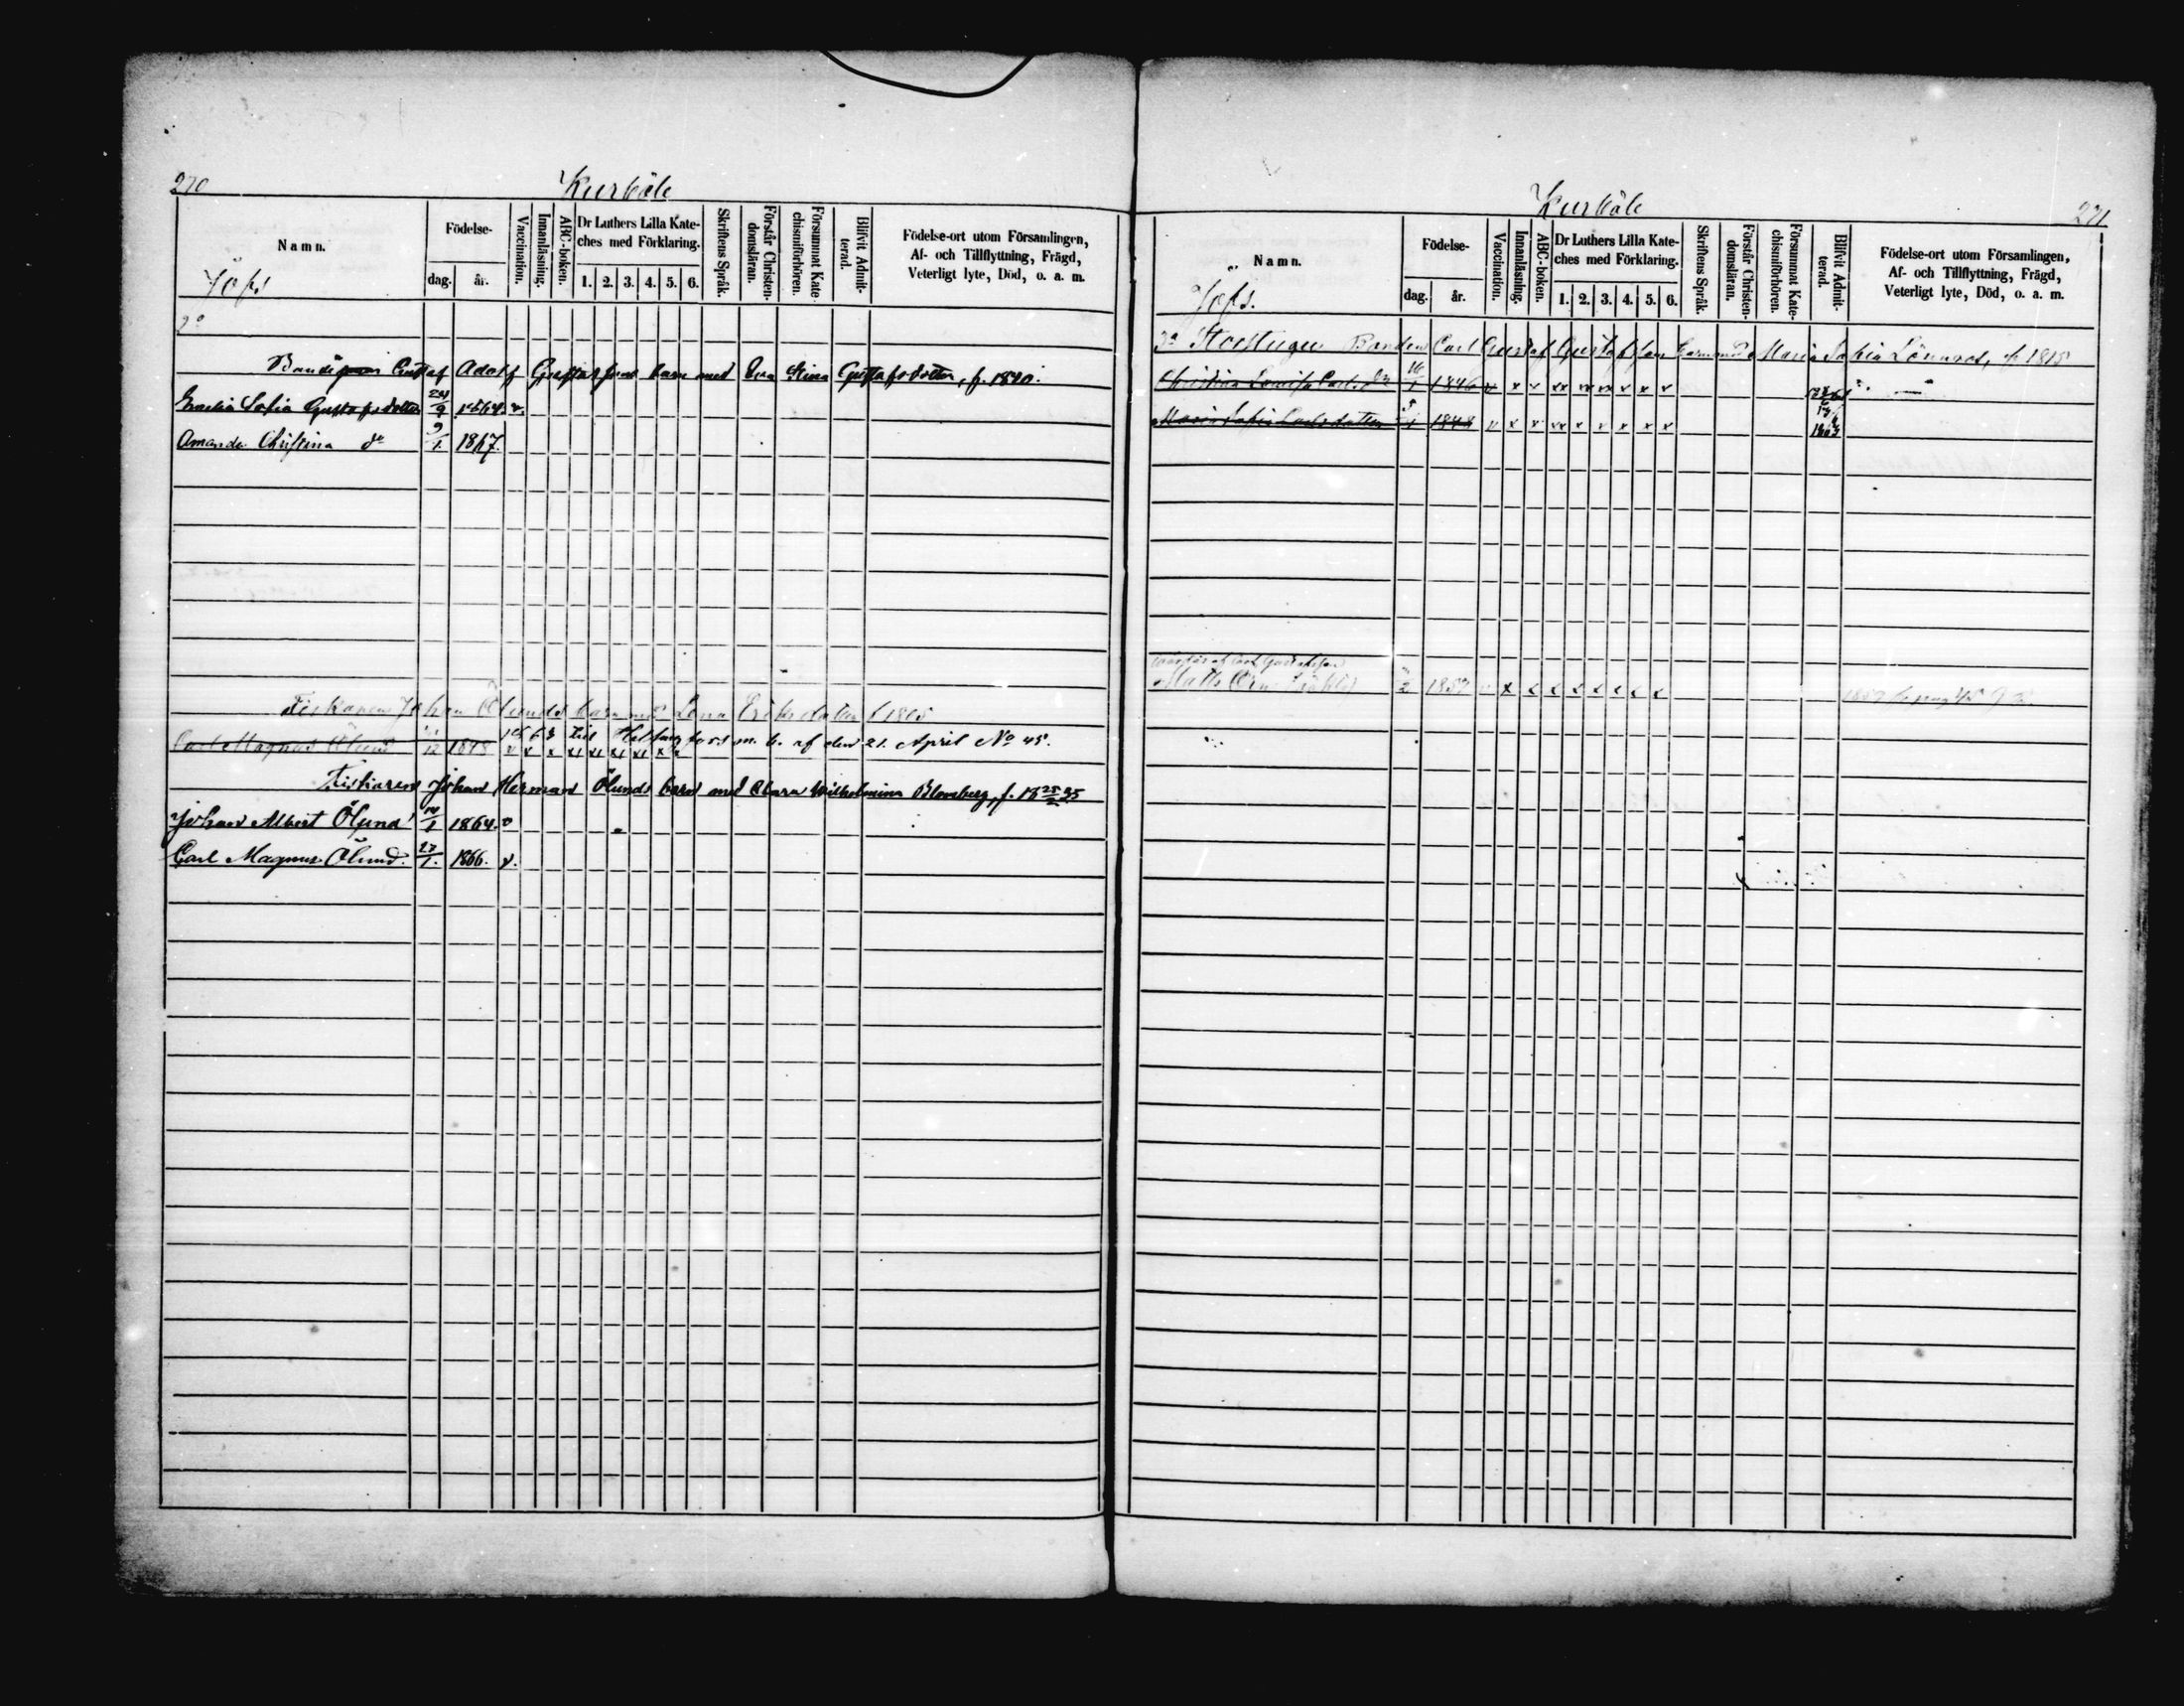 270
Kurböle
Namn.
Födelse-
dag.
år.
Vaccination.
Innanläsning.
ABC-boken.
Dr Luthers Lilla Kate-
ches med Förklaring.
1. 2. 3. 4. 5. 6.
Skriftens Språk.
Förstår Christen-
domsläran.
Försummat Kate-
chismiförhören.
Blifvit Admit-
terad.
Födelse-ort utom Församlingen,
Af- och Tillflyttning, Frägd,
Veterligt lyte, Död, o. a. m.
Jöfs
2º
Gustaf Adolf Gustafssons barn med Eva Stina Gustafsdotter, f. 1840.
Emelia Sofia Gustafsdotter 24/9 1864. v.
Amanda Christina dº 9/1. 1867.
Fiskaren Johan Ölunds barn med Lena Eriksdotter f 1805
1863 till Helsingfors m. b. af den 21. April Nº 45.
Carl Magnus Ölund /12 1848 v x x x x x x x x
Fiskaren Johan Herman Ölunds barn med Clara Wilhelmina Blomberg, f. 18 25/2 35
Johan Albert Ölund /1 1864. v
Carl Magnus Ölund. 27/1. 1866. v.
271
Kurböle
Namn.
Födelse-
dag.
år.
Vaccination.
Innanläsning.
ABC-boken.
Dr Luthers Lilla Kate-
ches med Förklaring.
1. 2. 3. 4. 5. 6.
Skriftens Språk.
Förstår Christen-
domsläran.
Försummat Kate-
chismiförhören.
Blifvit Admit-
terad.
Födelse-ort utom Församlingen,
Af- och Tillflyttning, Frägd,
Veterligt lyte, Död, o. a. m.
Jöfs.
3º Storstugu Bonden Carl Gustaf Gustafssons barn med Maria Sofia Lönnrot, f. 1815
Christina Lovisa Carlsdr 16/1 1846 v x x xx x xx x x x
Maria Sofia Carlsdotter 5/1 1848 v x x xx x x x x x
1863
Matts 2 1857 v x x x x x x x x